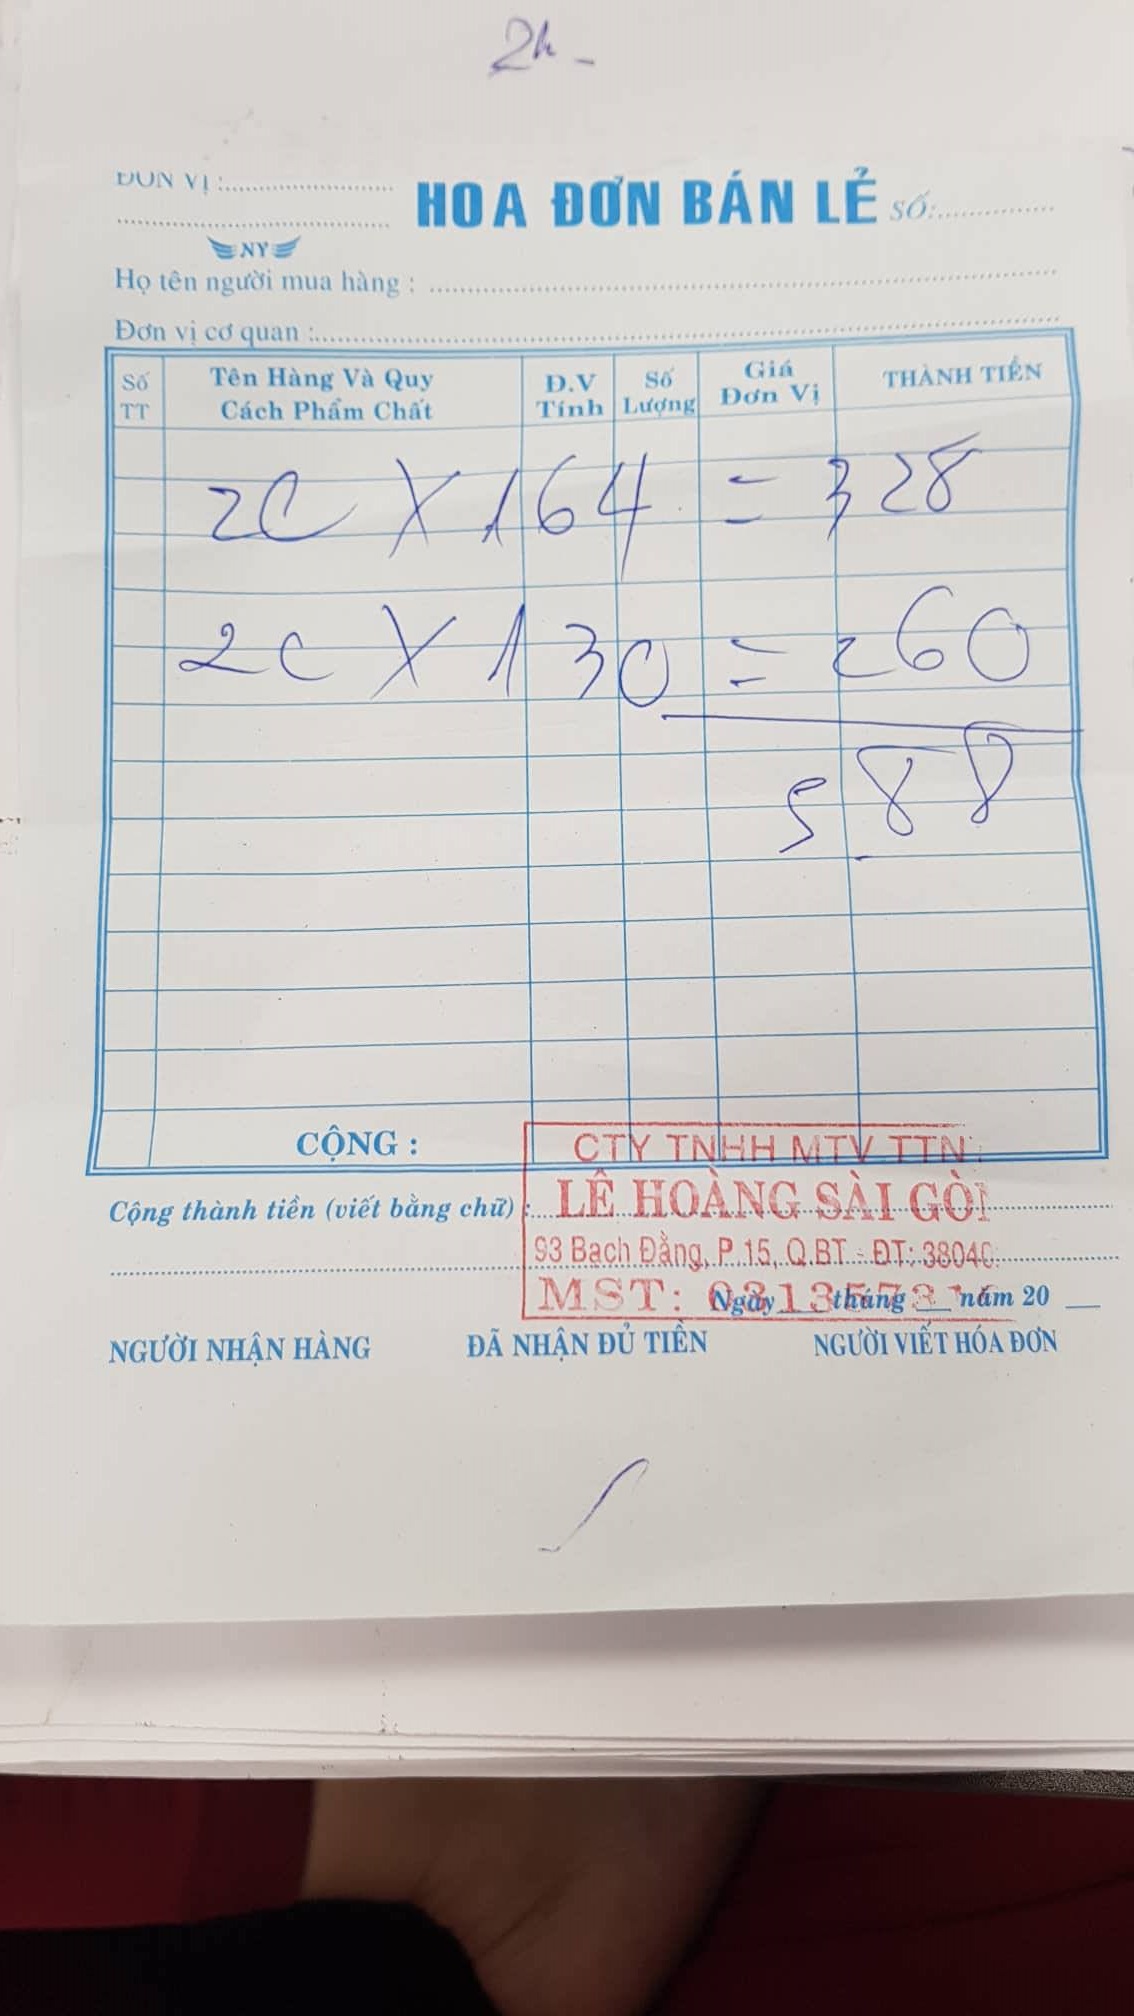 2h -
ĐƠN VỊ :
HOA ĐƠN BÁN LẺ SỐ:
NY
Họ tên người mua hàng :
Đơn vị cơ quan :
Số TT Tên Hàng Và Quy Cách Phẩm Chất Đ.V Tính Số Lượng Giá Đơn Vị THÀNH TIỀN
2C X 164 = 328
2C X 130 = 260
588
CỘNG :
CTY TNHH MTV TTN
Cộng thành tiền (viết bằng chữ) :
LÊ HOÀNG SÀI GÒN
93 Bạch Đằng, P.15, Q.BT - ĐT: 3804
MST:
Ngày tháng năm 20
NGƯỜI NHẬN HÀNG ĐÃ NHẬN ĐỦ TIỀN NGƯỜI VIẾT HÓA ĐƠN